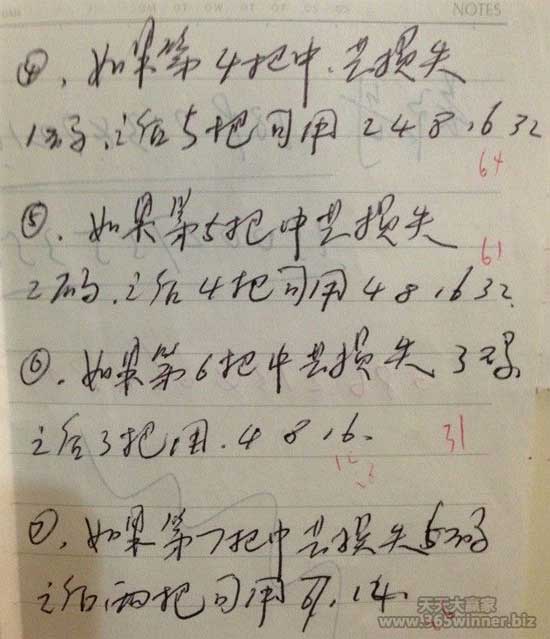 NOTES
④、如果第4把中、共损失
1码,之后5把可用 2 4 8 16 32
64
⑤、如果第5把中共损失
61
2码、之后4把可用 4 8 16 32
⑥、如果第6把中共损失 3码
之后3把用、4 8 16、
31
⑦、如果第7把中共损失5码
之后两把可用 7、14、
天天大赢家
www.365winner.biz